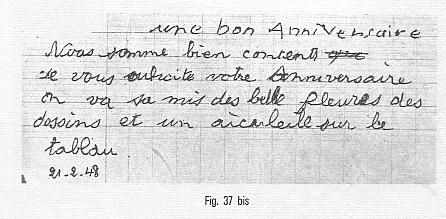 une bon Anniversaire
Nous somme bien contents que
de vous souhaite votre Anniversaire
on va sa mis des belle fleures des
dessins et un sur le
tablau
21-2-48
Fig. 37 bis